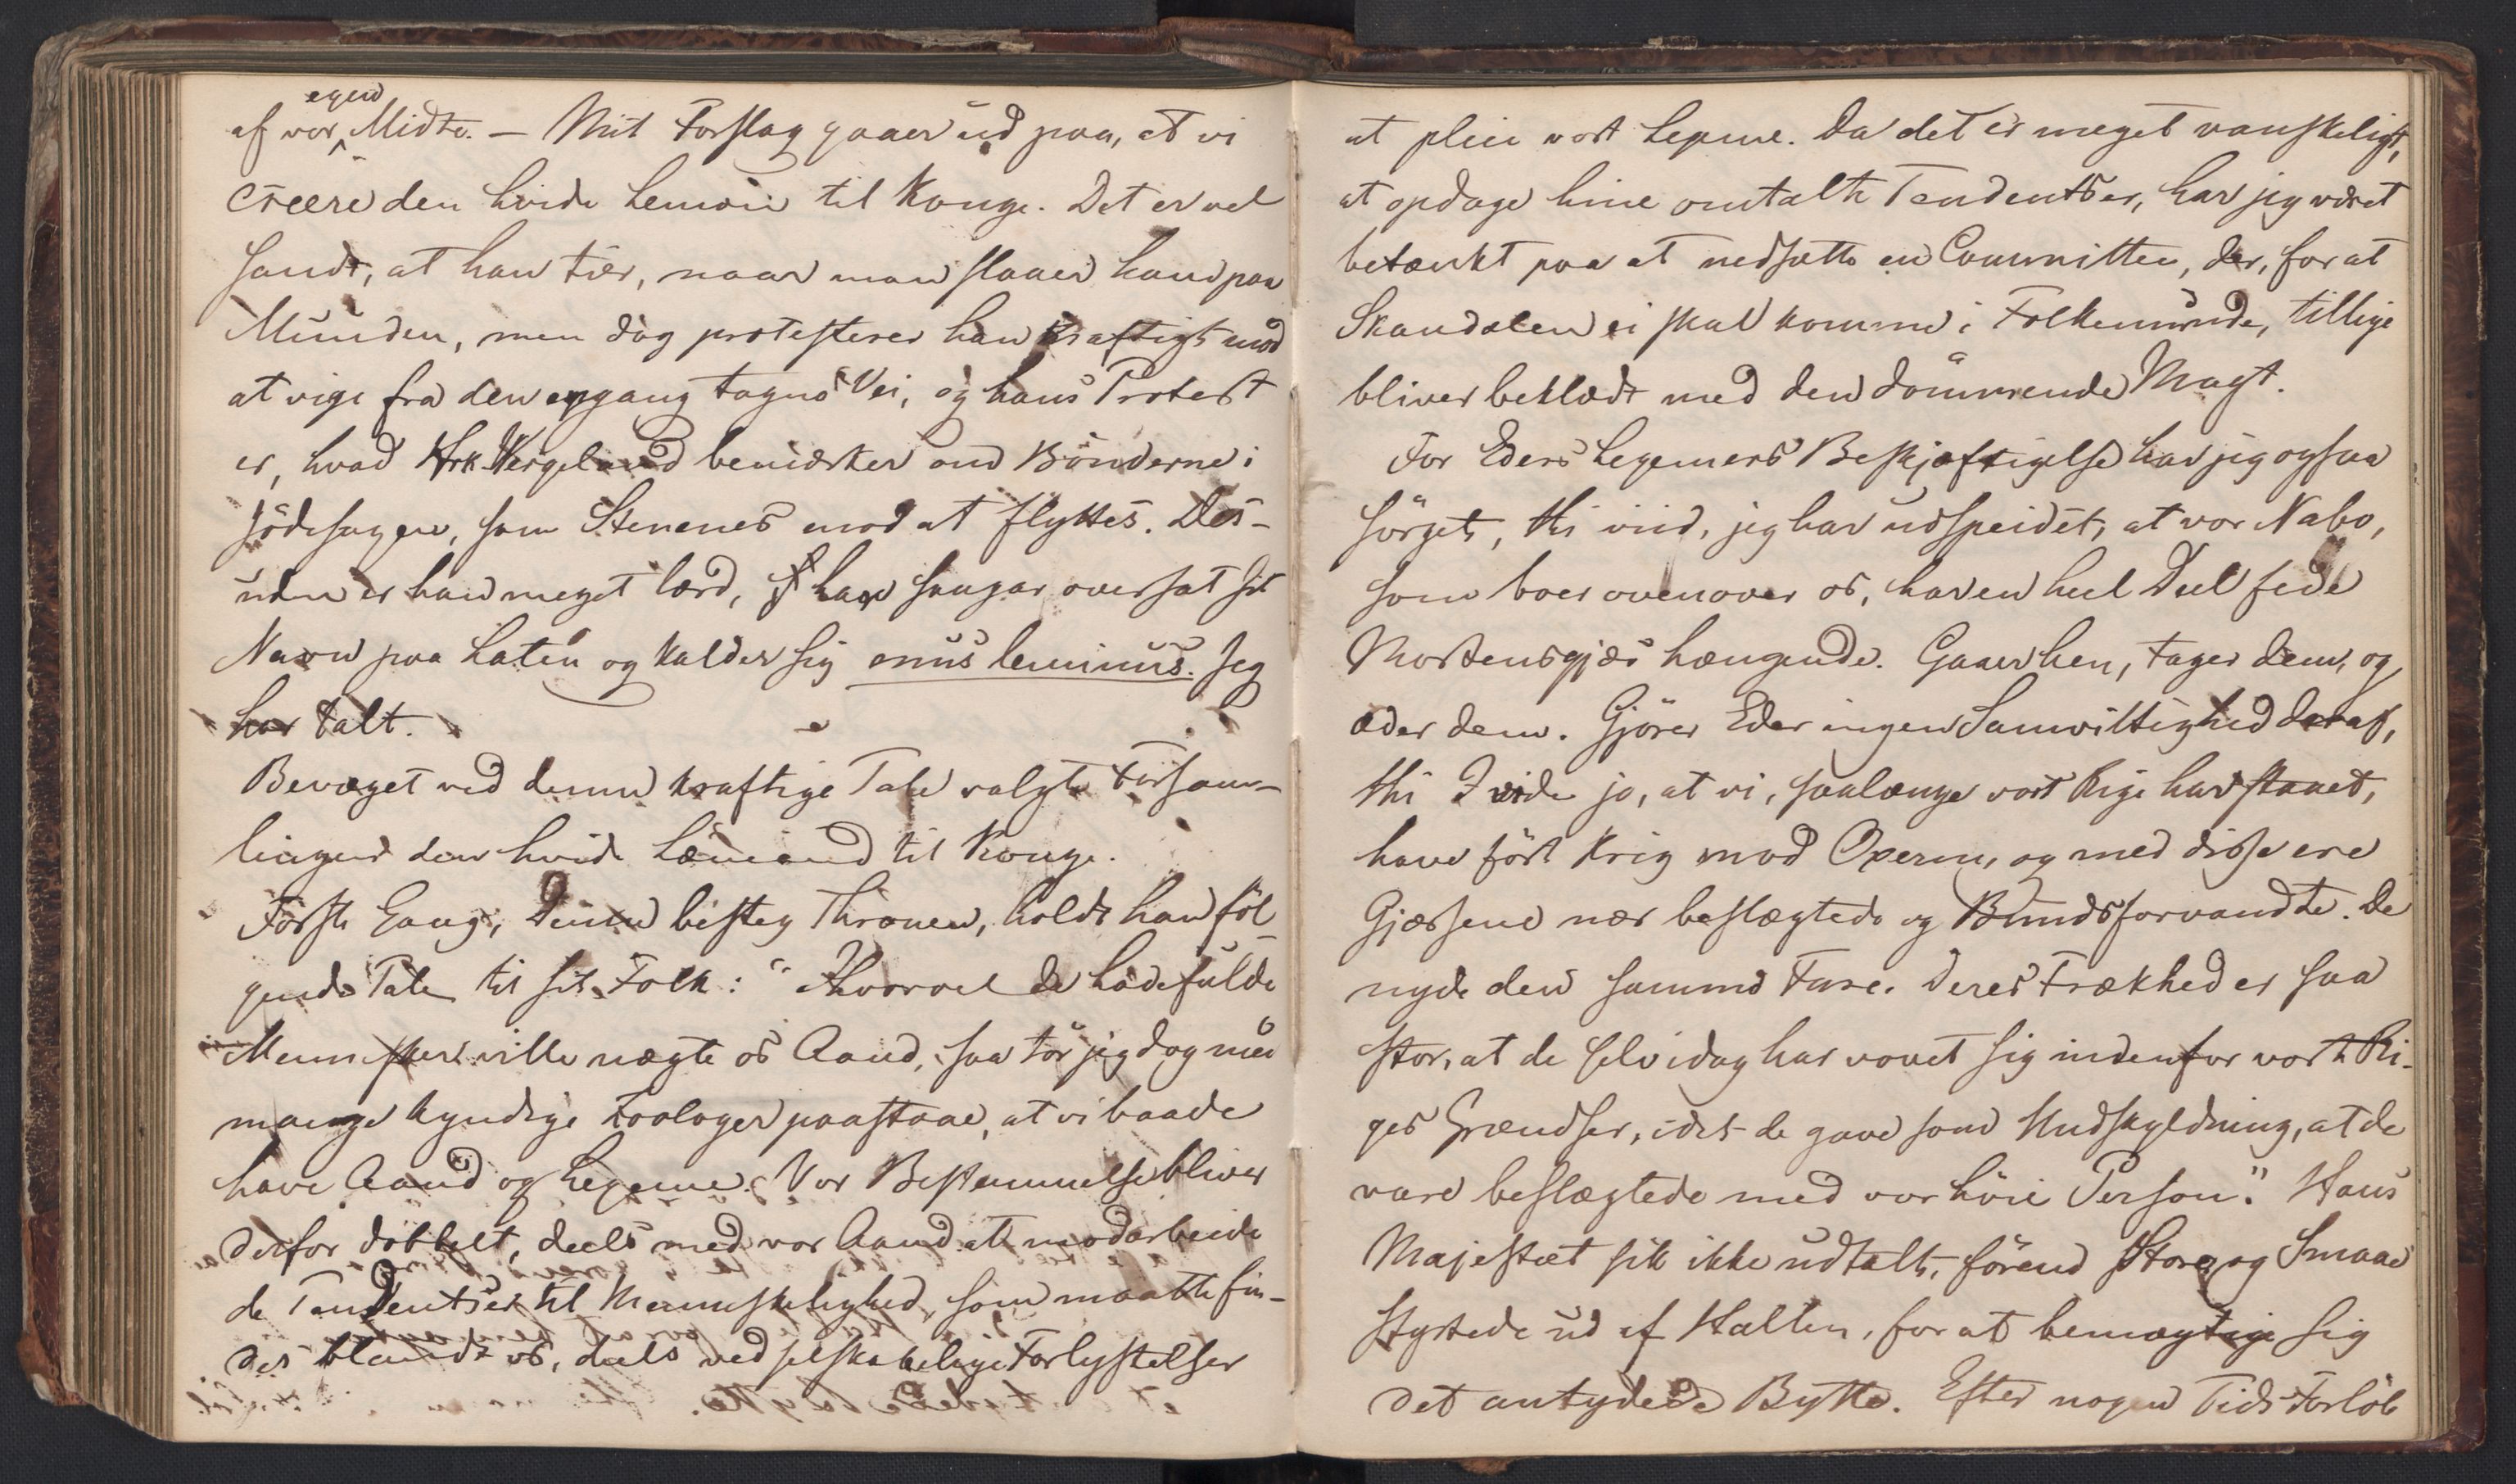 egen
af vor Midte. — Mit Forslag gaaer ud paa, at vi
creere den hvide Lemæn til Konge. Det er vel
sandt, at han tier, naar man slaaer ham paa
Munden, men dog protesterer han kraftigt mod
at vige fra den engang tagne Vei, og hans Protest
er, hvad Hrk. Wergeland bemærker om Bönderne i
Jödesagen, som Stenenes mod at flyttes. Des-
uden er han meget lærd, har saagar oversat sit
Navn paa Latin og kalder sig mus leminus. Jeg
har talt.
Bevæget ved denne kraftige Tale valgte Forsam-
lingen den hvide Læmænd til Konge.
Förste Gang, Denne besteg Thronen, holdt han föl-
gende Tale til sit Folk: "Hvorvel de hadefulde
Mennesker ville nægte os Aand, saa tör jeg dog med
mange kyndige Zoologer paastaae, at vi baade
have Aand og Legeme. Vor Bestemmelse bliver
derfor dobbelt, deels med vor Aand at modarbeide
de Tendentser til Menneskelighed, som maatte fin-
des blandt os, deels ved selskabelige Forlystelser
at pleie vort Legeme. Da det er meget vanskeligt,
at opdage hine omtalte Tendentser, har jeg været
betænkt paa at nedsætte en Committee, der, for at
Skandalen ei skal komme i Folkemunde, tillige
bliver beklædt med den dömmende Magt.
For Eders Legemers Beskjæftigelse har jeg ogsaa
sörget, thi viid, jeg har udspeidet, at vor Nabo,
som boer ovenover os, har en heel Deel fede
Mortensgjæs hængende. Gaaer hen, tager dem, og
æder dem. Gjörer Eder ingen Samvittighed deraf,
thi I vide jo, at vi, saalænge vort Rige har staaet,
have fört Krig mod Oxerne, og med disse ere
Gjæssene nær beslægtede og Bundsforvandte. De
nyde den samme Fure. Deres Frækhed er saa
stor, at de selv idag har vovet sig indenfor vort Ri-
ges Grændser, idet de gave som Undskyldning, at de
vare beslægtede med vor höie Person." Hans
Majestæt fik ikke udtalt, förend Store og Smaae
styrtede ud af Hallen, for at bemægtige sig
det antydede Bytte. Efter nogen Tids Forlöb